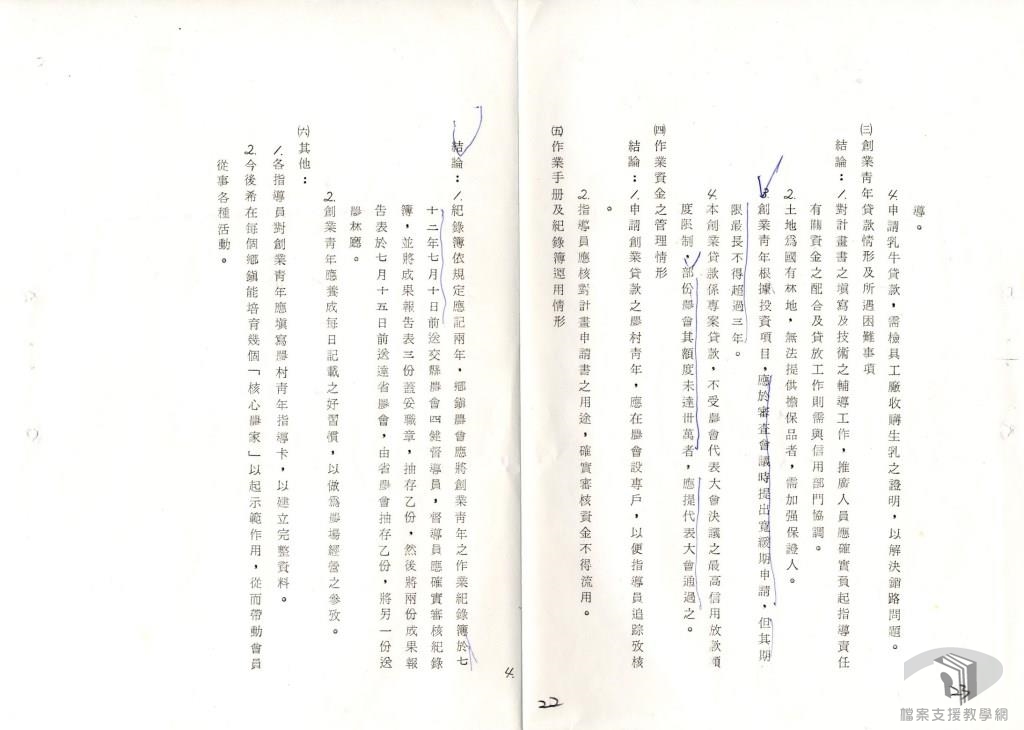 導。
4.申請乳牛貸款，需檢具工廠收購生乳之證明，以解決銷路問題。
㈢創業青年貸款情形及所遇困難事項
結論：1.對計畫書之填寫及技術之輔導工作，推廣人員應確實負起指導責任
有關資金之配合及貸放工作則需與信用部門協調。
2.土地為國有林地，無法提供擔保品者，需加强保證人。
3.創業青年根據投資項目，應於審查會議時提出寬緩期申請，但其期
限最長不得超過三年。
4.本創業貸款係專案貸款，不受農會代表大會決議之最高信用放款額
度限制，部份農會其額度未達卅萬者，應提代表大會通過之。
㈣作業資金之管理情形
結論：1.申請創業貸款之農村青年，應在農會設專戶，以便指導員追踪攷核
。
2.指導員應核對計畫申請書之用途，確實審核資金不得流用。
㈤作業手册及紀錄簿運用情形
結論：1.紀錄簿依規定應記兩年，鄉鎮農會應將創業青年之作業紀錄簿於七
十二年七月十日前送交縣農會四健督導員，督導員應確實審核紀錄
簿，並將成果報告表三份蓋妥職章，抽存乙份，然後將兩份成果報
告表於七月十五日前送達省農會，由省農會抽存乙份，將另一份送
農林廳。
2.創業青年應養成每日記載之好習慣，以做為農場經營之參攷。
㈥其他：
1.各指導員對創業青年應填寫農村青年指導卡，以建立完整資料。
2.今後希在每個鄉鎮能培育幾個「核心農家」以起示範作用，從而帶動會員
從事各種活動。
4.
22
23
檔案支援教學網